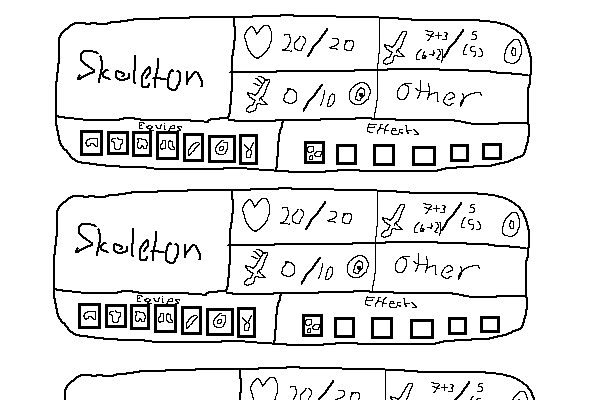 Skeleton
20/20
7+3/5
(6+2) (5)
0/10
Other
Equips
Effects
Skeleton
20/20
7+3/5
(6+2) (5)
0/10
Other
Equips
Effects
20/20
7+3/5